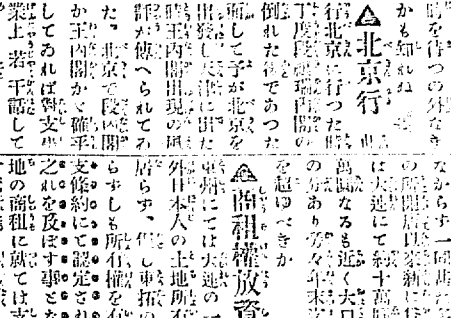 時を待つの外なき
かも知れぬ
▲北京行
行北京に行つた時
丁度段祺瑞内閣の
倒れた後であつた
而して予が北京を
出發し天津に出た
時王内閣出現の風
評が傳へられてゐ
た、北京で段内閣
か王内閣かゞ確乎
してゐれば對支事
業上若干話して
なからず一同
は大連にて約十萬
萬圓なるも近く大口
の分あり旁々年末
を超ゆべきか
▲商租權放資
にては大連の
外日本人の土地所有
居らず、但し東拓の
らずしも所有權を有
支條約にて認定され
之れを及ぼす事とな
地の商租に就ては支